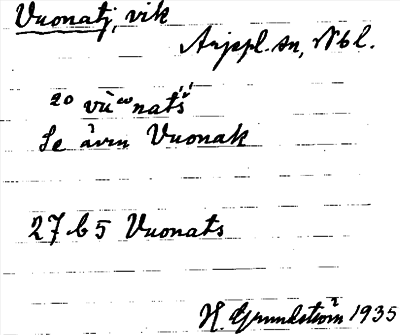 Vuonatj, vik
Arjepl. sn, Nbl.
20 vùᵚnatš́
Se även Vuonak
27 b 5 Vuonats
H. Grundström 1935